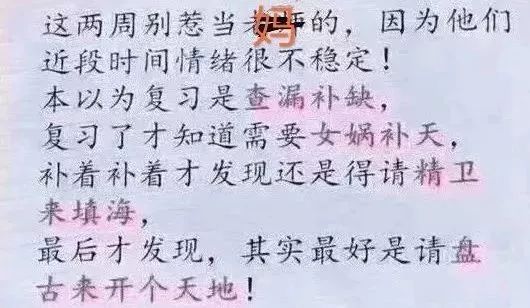 这两周别惹当妈的，因为他们
近段时间情绪很不稳定！
本以为复习是查漏补缺，
复习了才知道需要女娲补天，
补着补着才发现还是得请精卫
来填海，
最后才发现，其实最好是请盘
古来开个天地！